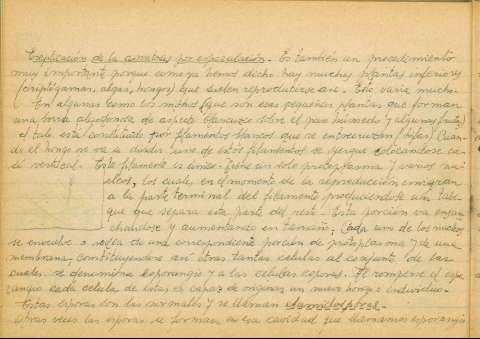 Explicación de la              por esporulación. Es también un procedimiento
muy importante porque como ya hemos dicho hay muchas plantas inferiores
(criptógamas, algas, hongos) que suelen reproducirse así. Esto varía mucho.
En algunas como los mohos (que son esas pequeñas plantas que forman
una borra algodonosa de aspecto blancuzco sobre el pan húmedo y algunas frutas)
el talo está constituido por filamentos blancos que se entrecruzan (hifas). Cuan-
do el hongo se va a dividir uno de estos filamentos se yergue colocándose ca-
si vertical. Este filamento es único. Tiene un solo protoplasma y varios nu-
cleos, los cuales, en el momento de la reproducción emigran
a la parte terminal del filamento produciéndose un tabi-
que que separa esta parte del resto. Esta porción va ensan-
chándose y aumentando en tamaño; Cada uno de los nucleos
se envuelve o rodea de una correspondiente porción de protoplasma y de una
membrana, constituyéndose así otras tantas celulas al conjunto de las
cuales se denomina esporangio y a las celulas esporas. Al romperse el espo-
rangio cada celula de estas es capaz de originar un nuevo hongo individuo.
Estas esporas son las normales y se llaman clamidosporas.
Otras veces las esporas se forman en esa cavidad que llamamos esporangio